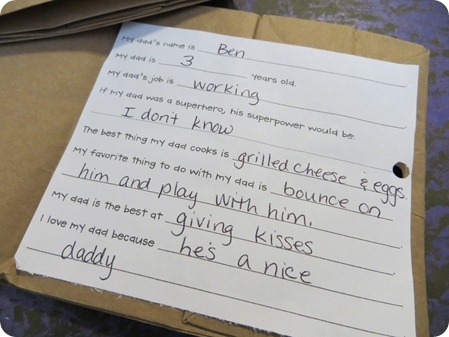 My dad's name is Ben
My dad is 3 years old.
My dad's job is working
If my dad was a superhero, his superpower would be:
I don't know
The best thing my dad cooks is grilled cheese & eggs.
My favorite thing to do with my dad is bounce on
him and play with him.
My dad is the best at giving kisses
I love my dad because he's a nice
daddy